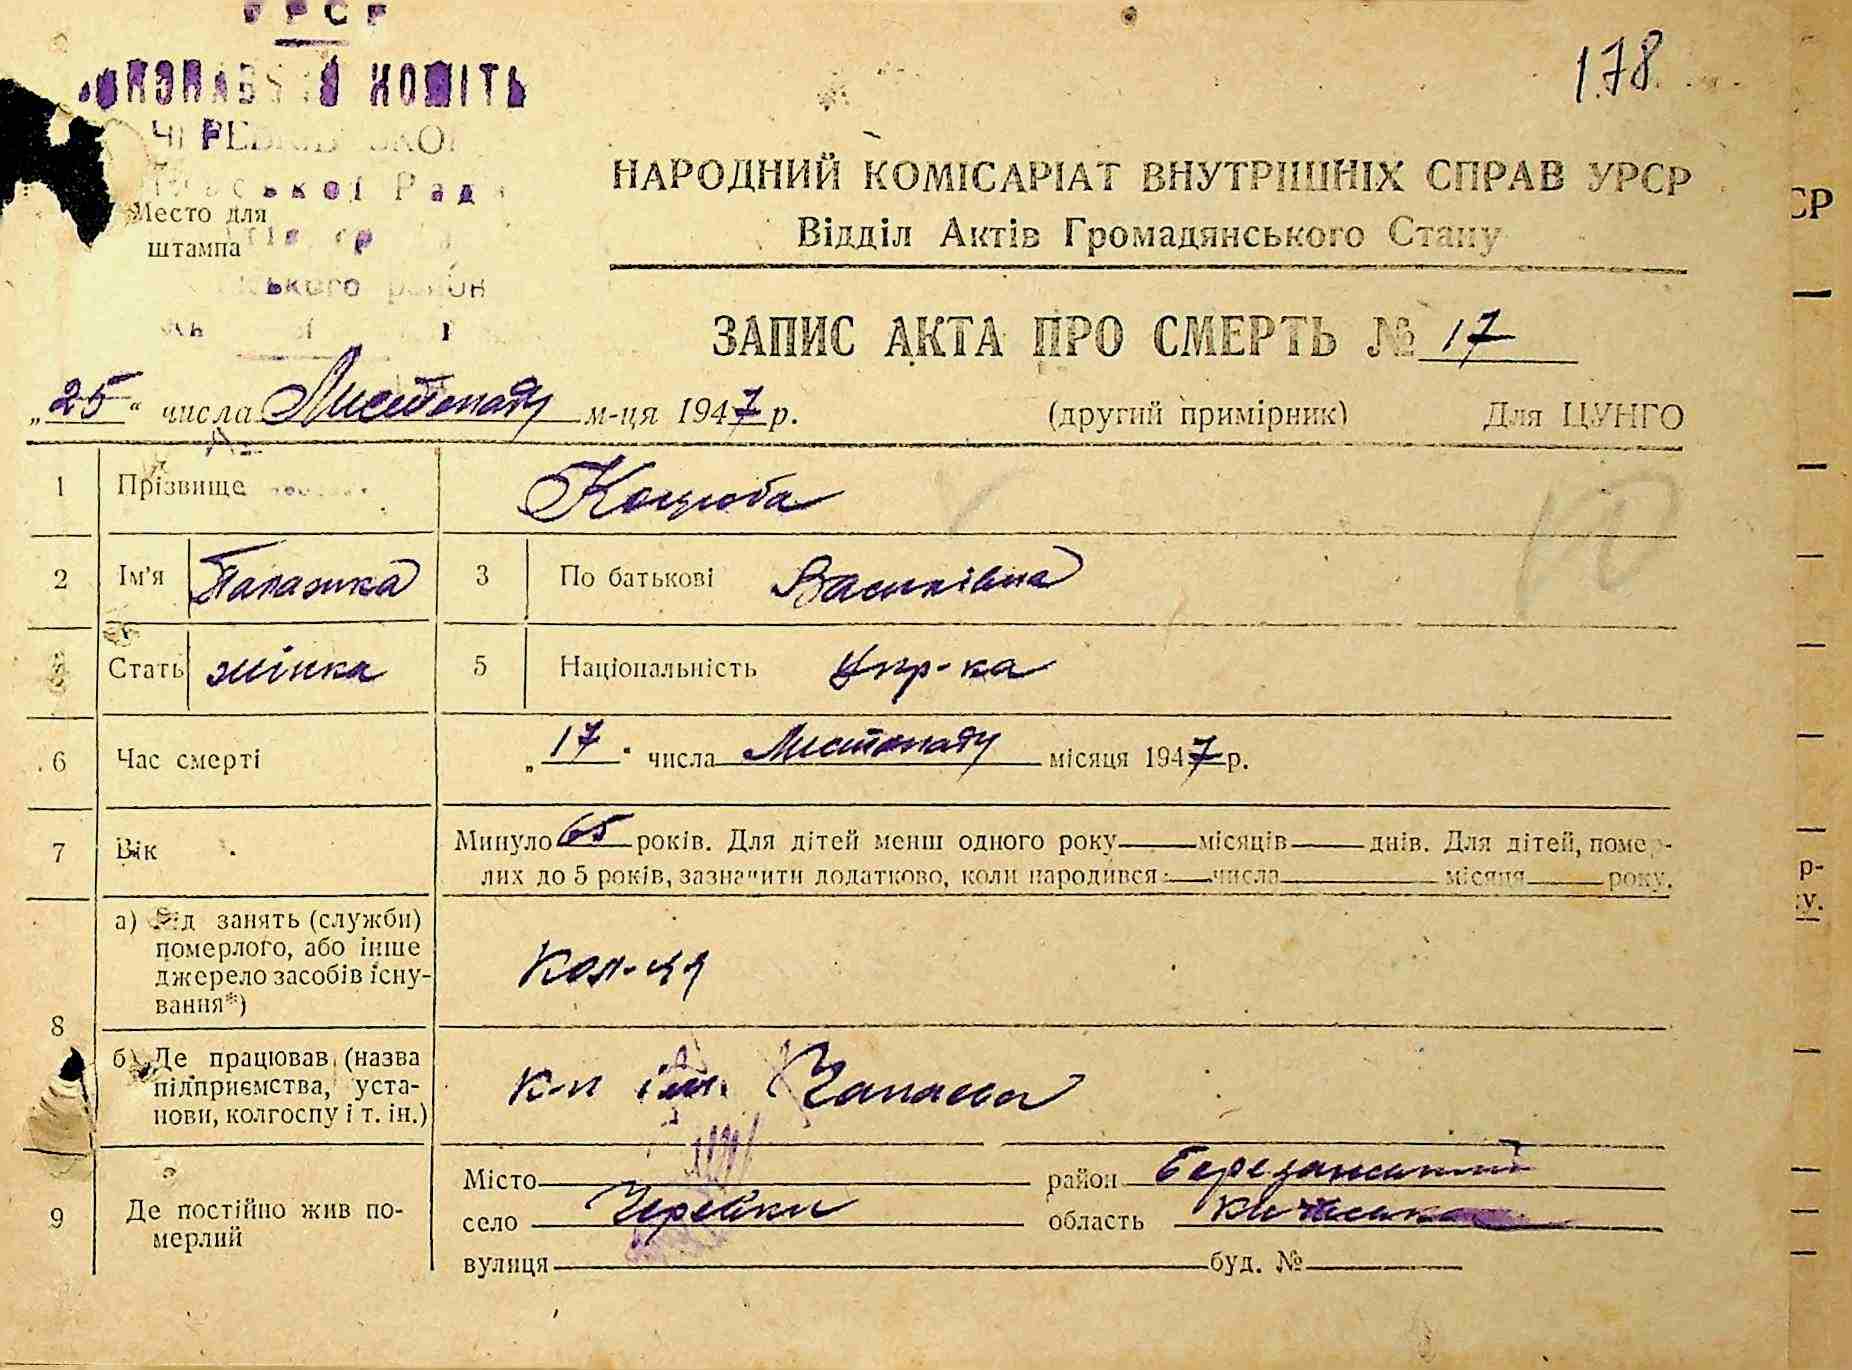 УРСР
178
ВИКОНАВЧИЙ КОМІТЕ
НАРОДНИЙ КОМІСАРІАТ ВНУТРІШНІХ СПРАВ УРСР
ської Рад
Место для
штампа
Відділ Актів Громадянського Стану
ського район
ЗАПИС АКТА ПРО СМЕРТЬ № 17
„25“ числа Листопаду м-ця 1947 р. (другий примірник) Для ЦУНГО
1 Прізвище Коцюба
2 Ім'я Палажка 3 По батькові Василівна
Стать жінка 5 Національність Укр-ка
6 Час смерті „17“ числа Листопаду місяця 1947 р.
7 Вік Минуло 65 років. Для дітей менш одного року місяців днів. Для дітей, помер-
лих до 5 років, зазначити додатково, коли народився: числа місяця року.
8 а) Від занять (служби)
померлого, або інше
джерело засобів існу-
вання*)
кол-ця
б) Де працював (назва
підприємства, уста-
нови, колгоспу і т. ін.)
к-п ім. Чапаєва
9 Де постійно жив по-
мерлий
Місто район Березанський
село область Київська
вулиця буд. №
СР
р-
у.